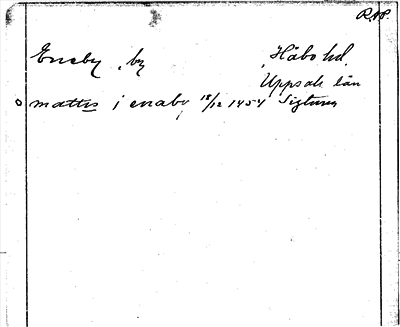 RAP.
Eneby, by Håbo hd.
Uppsala län
mattis i enaby 18/12 1454 Sigtuna